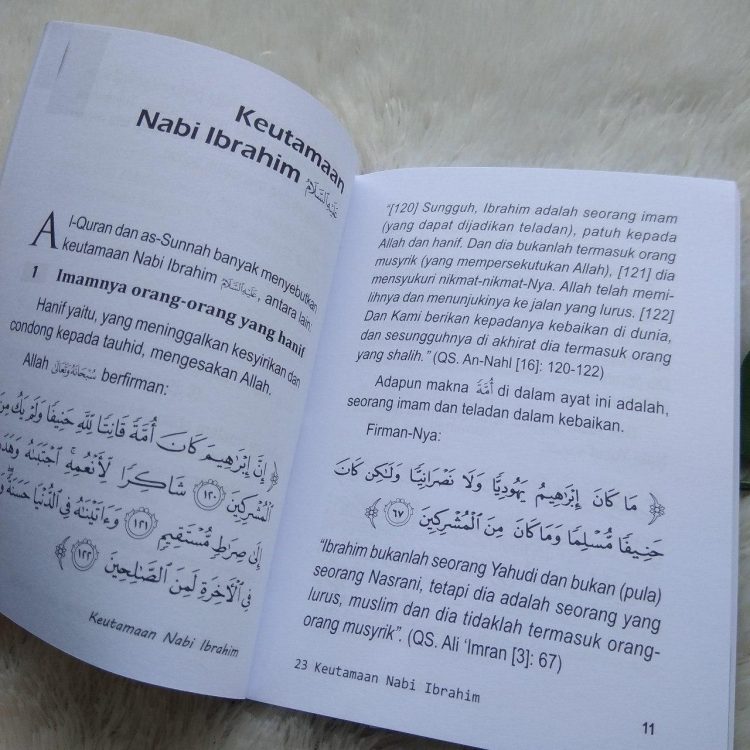 Keutamaan
Nabi Ibrahim عَلَيْهِ السَّلَامُ
Al-Quran dan as-Sunnah banyak menyebutkan
keutamaan Nabi Ibrahim عَلَيْهِ السَّلَامُ, antara lain:
1 Imamnya orang-orang yang hanif
Hanif yaitu, yang meninggalkan kesyirikan dan
condong kepada tauhid, mengesakan Allah.
Allah سُبْحَانَهُ وَتَعَالَى berfirman:
﴿ إِنَّ إِبْرَٰهِيمَ كَانَ أُمَّةً قَانِتًا لِّلَّهِ حَنِيفًا وَلَمْ يَكُ مِنَ
ٱلْمُشْرِكِينَ ١٢٠ شَاكِرًا لِّأَنْعُمِهِ ۚ ٱجْتَبَىٰهُ وَهَدَىٰهُ
إِلَىٰ صِرَٰطٍ مُّسْتَقِيمٍ ١٢١ وَءَاتَيْنَٰهُ فِي ٱلدُّنْيَا حَسَنَةً ۖ وَإِنَّهُ
فِي ٱلْءَاخِرَةِ لَمِنَ ٱلصَّٰلِحِينَ ١٢٢ ﴾
Keutamaan Nabi Ibrahim
“[120] Sungguh, Ibrahim adalah seorang imam
(yang dapat dijadikan teladan), patuh kepada
Allah dan hanif. Dan dia bukanlah termasuk orang
musyrik (yang mempersekutukan Allah), [121] dia
mensyukuri nikmat-nikmat-Nya. Allah telah memi-
lihnya dan menunjukinya ke jalan yang lurus. [122]
Dan Kami berikan kepadanya kebaikan di dunia,
dan sesungguhnya di akhirat dia termasuk orang
yang shalih.” (QS. An-Nahl [16]: 120-122)
Adapun makna أُمَّةً di dalam ayat ini adalah,
seorang imam dan teladan dalam kebaikan.
Firman-Nya:
﴿ مَا كَانَ إِبْرَٰهِيمُ يَهُودِيًّا وَلَا نَصْرَانِيًّا وَلَٰكِن كَانَ
حَنِيفًا مُّسْلِمًا وَمَا كَانَ مِنَ ٱلْمُشْرِكِينَ ٦٧ ﴾
“Ibrahim bukanlah seorang Yahudi dan bukan (pula)
seorang Nasrani, tetapi dia adalah seorang yang
lurus, muslim dan dia tidaklah termasuk orang-
orang musyrik”. (QS. Ali ‘Imran [3]: 67)
23 Keutamaan Nabi Ibrahim
11